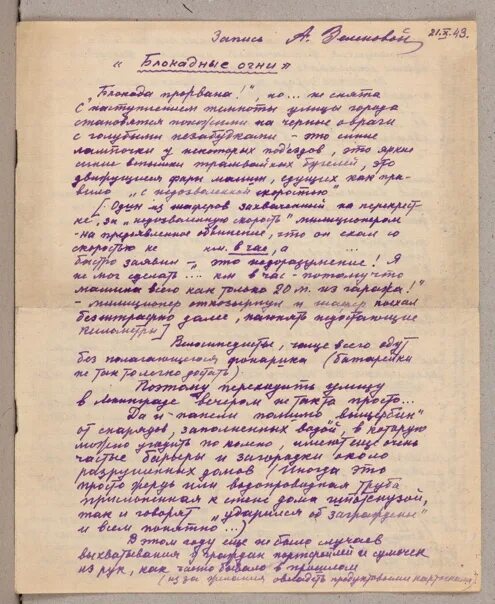 Запись А. Зеленовой 21.X.43.
„Блокадные огни"
„Блокада прорвана!", но... не снята
С наступлением темноты улицы города
становятся похожими на черные овраги
с голубыми незабудками - это синие
лампочки у некоторых подъездов, это яркие
синие вспышки трамвайных бугелей, это
движущиеся фары машин, едущих как пра-
вило „с недозволенной скоростью"
[Один из шоферов захваченный на перекрест-
ке, за „недозволенную скорость" милиционером
- на предъявленное обвинение, что он ехал со
скоростью не км. в час, а ...
быстро заявил - „это недоразумение! Я
не мог сделать ... км в час - потому что
машина всего как только 20 м. из гаража!"
- милиционер откозырял и шофер поехал
безштрафно далее, нагонять недостающие
километры]
Велосипедисты, чаще всего едут
без полагающегося фонарика (батарейки
не так то легко достать).
Поэтому переходить улицу
в Ленинграде вечером не так то просто...
Да и панели помимо „выщербин"
от снарядов, заполненных водой, в которую
можно угодить по колено, имеют еще очень
частые барьеры и загородки около
разрушенных домов (Иногда это
просто жердь или водопроводная труба
прислоненная к стене дома гипотенузой,
так и говорят „ударился об заграждение"
и всем понятно...)
В этом году еще не было случаев
выхватывания у граждан портфелей и сумочек
из рук, как часто бывало в прошлом
(из за желания овладеть продуктовыми карточками)